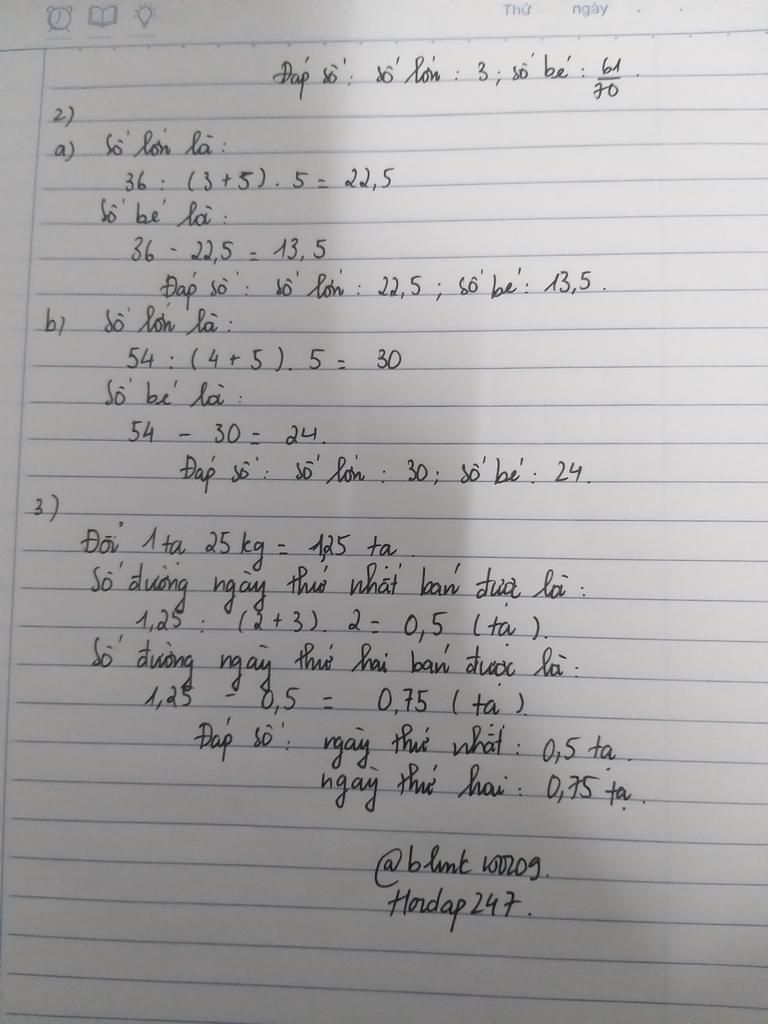 Thứ ngày . .
Đáp số: số lớn : 3 ; số bé : 61/70 .
2)
a) Số lớn là :
36 : (3 + 5) . 5 = 22,5
Số bé là :
36 - 22,5 = 13,5
Đáp số : số lớn : 22,5 ; số bé : 13,5 .
b) Số lớn là :
54 : (4 + 5) . 5 = 30
Số bé là :
54 - 30 = 24.
Đáp số : số lớn : 30 ; số bé : 24 .
3)
Đổi 1 tạ 25 kg = 1,25 tạ .
Số đường ngày thứ nhất bán được là :
1,25 : (2 + 3) . 2 = 0,5 (tạ).
Số đường ngày thứ hai bán được là :
1,25 - 0,5 = 0,75 (tạ).
Đáp số : ngày thứ nhất : 0,5 tạ .
ngày thứ hai : 0,75 tạ .
Hoidap247 .